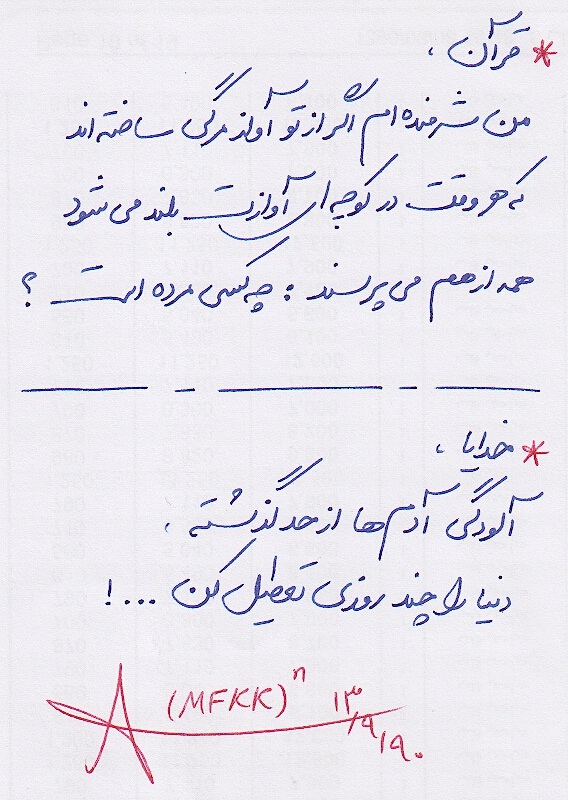 * قرآن ،
من شرمنده ام اگر از تو آواز مرگی ساخته اند
که هر وقت در کوچه ای آوازت بلند می شود
همه از هم می پرسند : چه کسی مرده است ؟
* خدایا ،
آلودگی آدم ها از حد گذشته ،
دنیا را چند روزی تعطیل کن ...!
(MFKK)ⁿ ۱۳/۹/۹۰